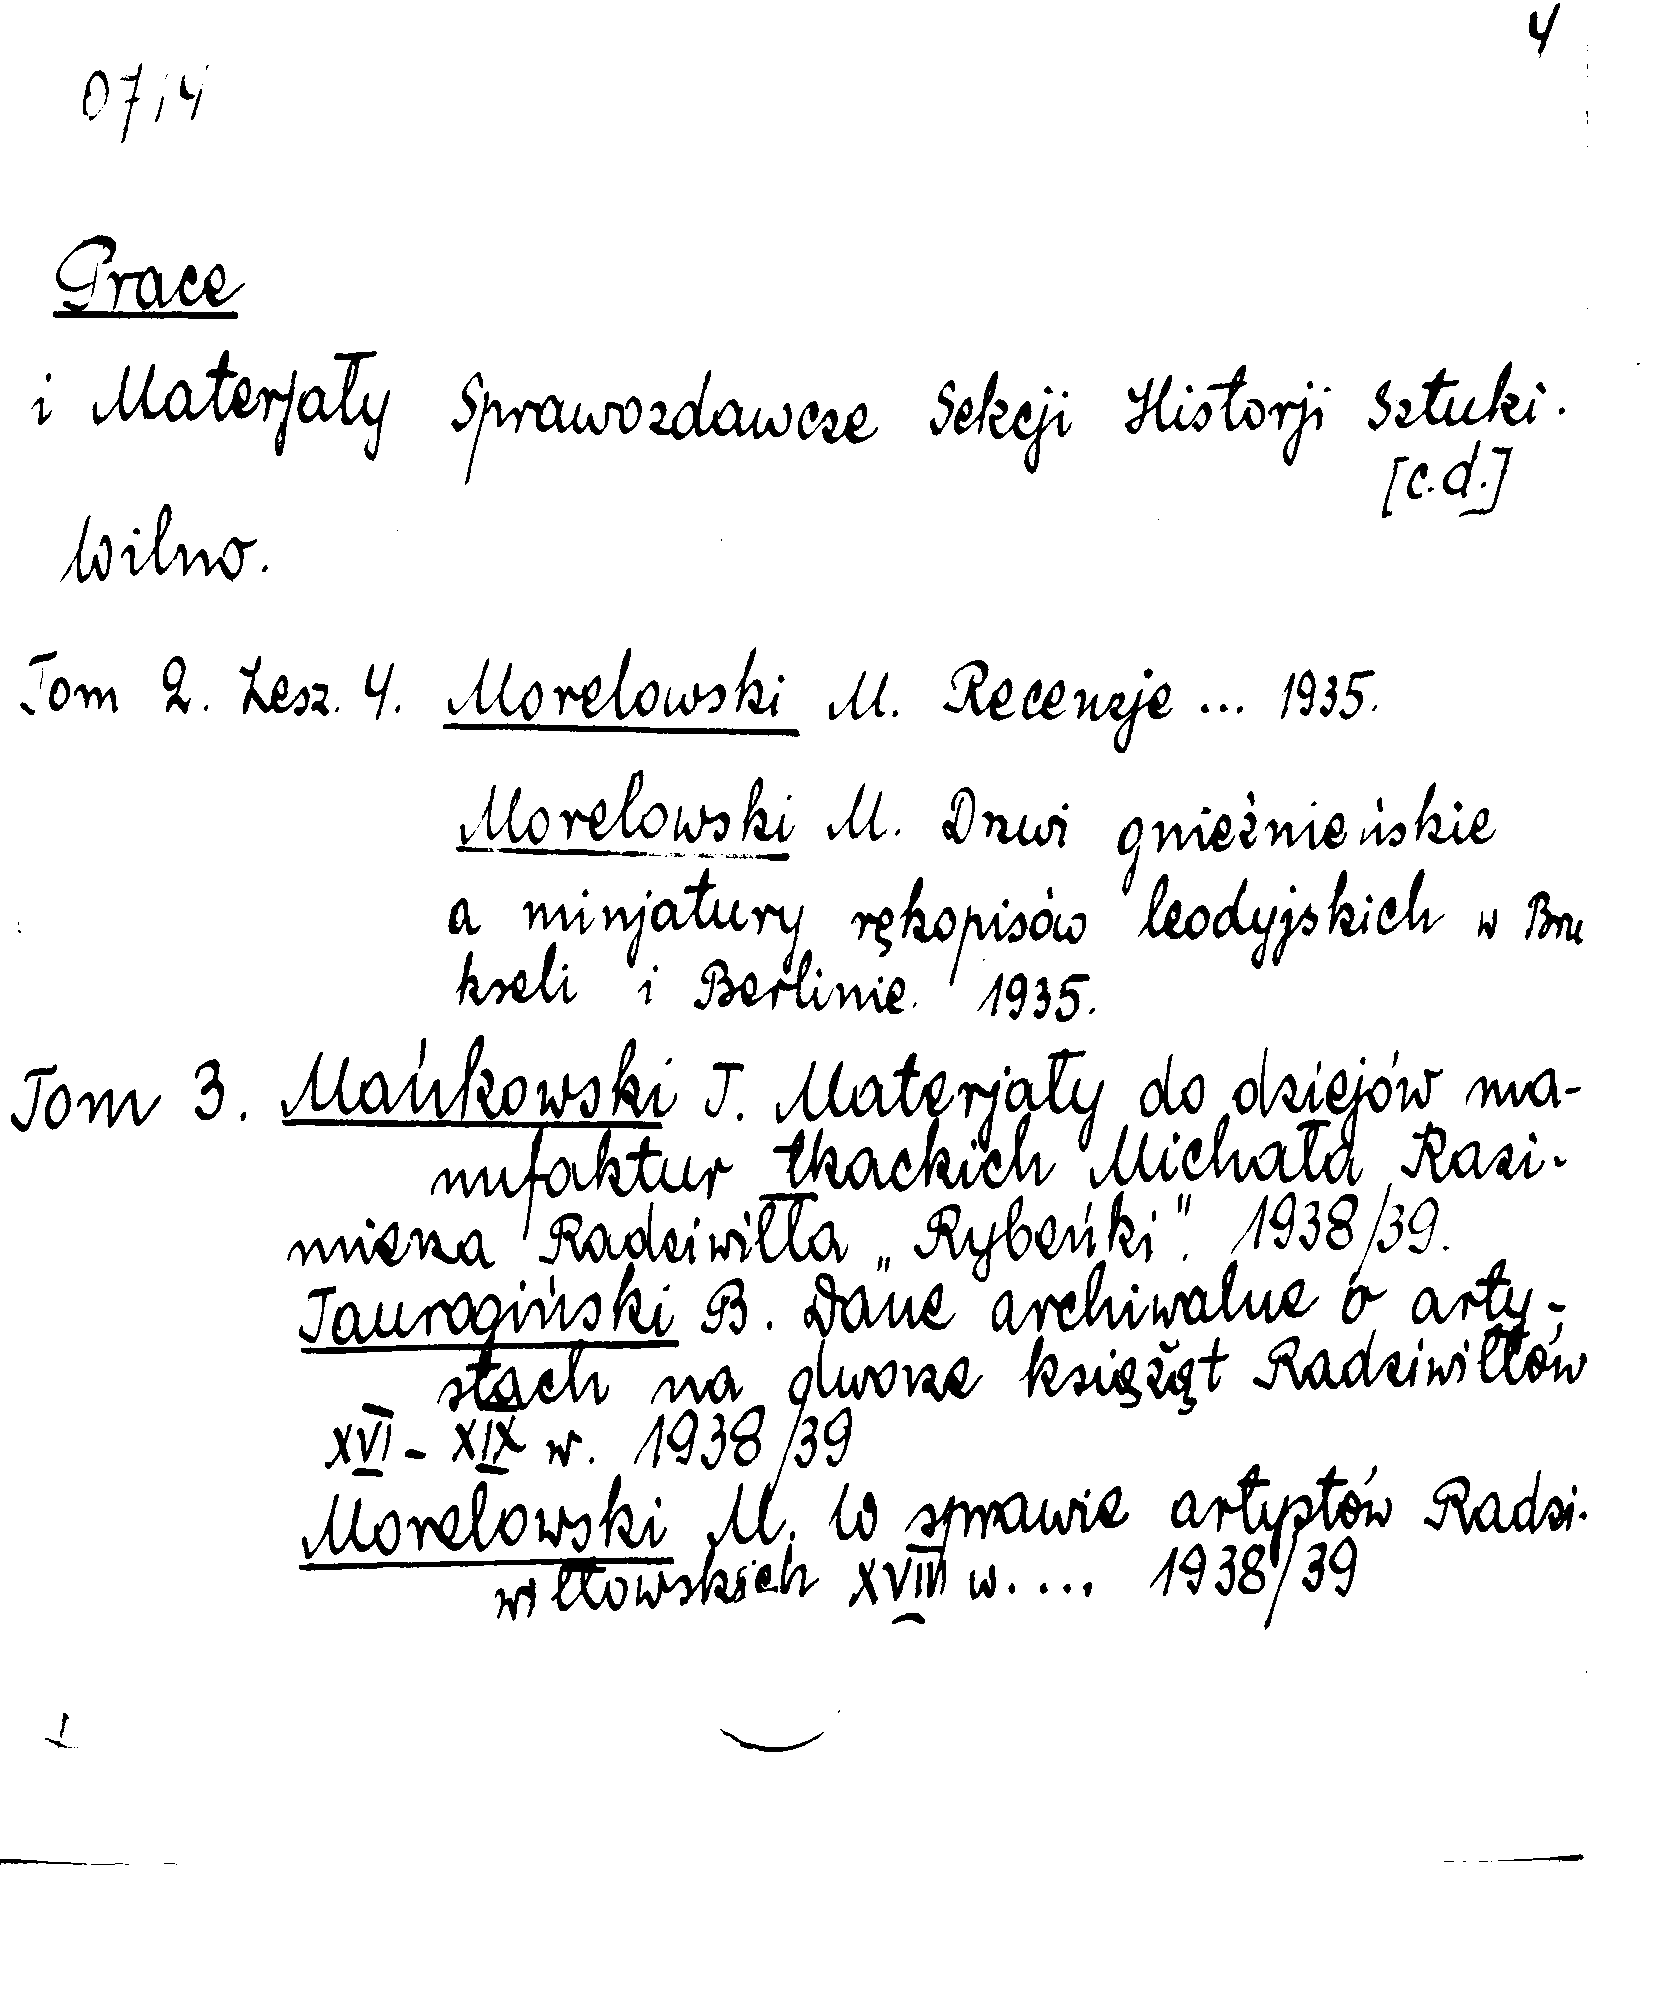 4
07i4
Prace
i Materjały Sprawozdawcze Sekcji Historji Sztuki.
[c.d.]
Wilno.
Tom 2. Zesz. 4. Morelowski M. Recenzje ... 1935.
Morelowski M. Drzwi gnieźnieńskie
a minjatury rękopisów leodyjskich w Bru
kseli i Berlinie. 1935.
Tom 3. Mańkowski T. Materjały do dziejów ma-
nufaktur tkackich Michała Kazi-
mierza Radziwiłła „Rybeńki". 1938/39.
Taurogiński B. Dane archiwalne o arty-
stach na dworze książąt Radziwiłłów
XVI - XIX w. 1938/39
Morelowski M. W sprawie artystów Radzi-
wiłłowskich XVIII w. ... 1938/39